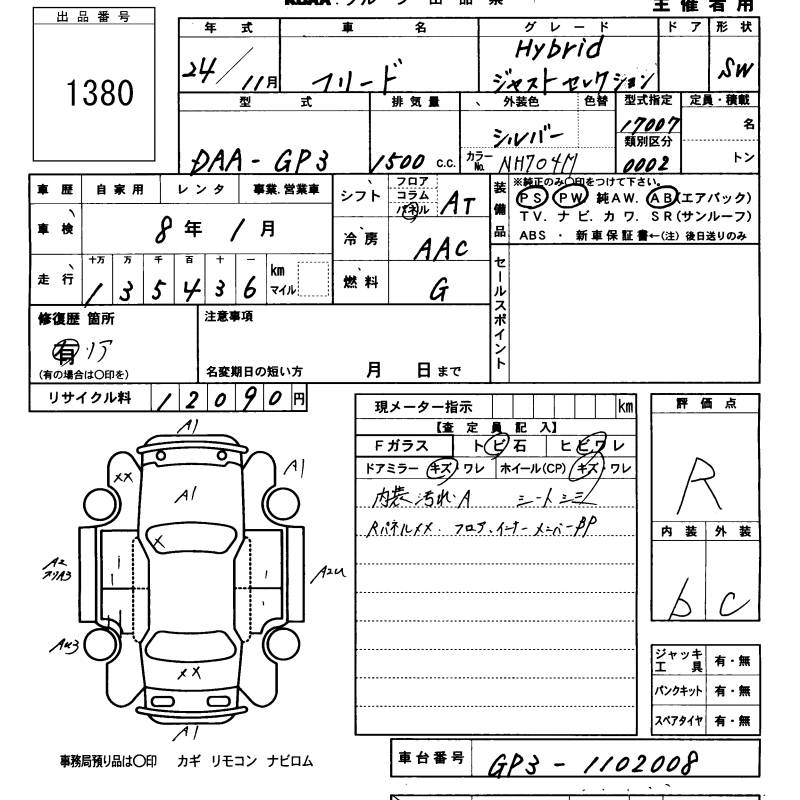 出品番号
1380
主催者用
年式 車名 グレード ドア 形状
24/11月 フリード Hybrid ジャストセレクション SW
型式 排気量 外装色 色替 型式指定 定員・積載
DAA-GP3 1500 c.c. シルバー 17007 名
類別区分
カラーNo. NH704M 0002 トン
車歴 自家用 レンタ 事業.営業車
シフト フロア コラム パネル AT
車検 8年 1月
冷房 AAC
走行 十万 万 千 百 十 一
1 3 5 4 3 6 km マイル
燃料 G
装備品
※純正のみ○印をつけて下さい。
PS PW 純AW. AB(エアバック)
TV. ナビ. カワ. SR(サンルーフ)
ABS ・ 新車保証書←(注)後日送りのみ
セールスポイント
修復歴 箇所
有 リア
(有の場合は○印を)
注意事項
名変期日の短い方 月 日まで
リサイクル料 12090円
現メーター指示 km
【査定員記入】
Fガラス トビ石 ヒビワレ
ドアミラー キズ・ワレ ホイール(CP) キズ・ワレ
内装 汚れ.A シートシミ
Rパネルメメ. フロア、インナーメンバーBP
評価点
R
内装 外装
b C
A1
XX
A1
A1
X
A2
A2u
Au3
XX
A1
ジャッキ工具 有・無
パンクキット 有・無
スペアタイヤ 有・無
事務局預り品は○印 カギ リモコン ナビロム
車台番号 GP3-1102008